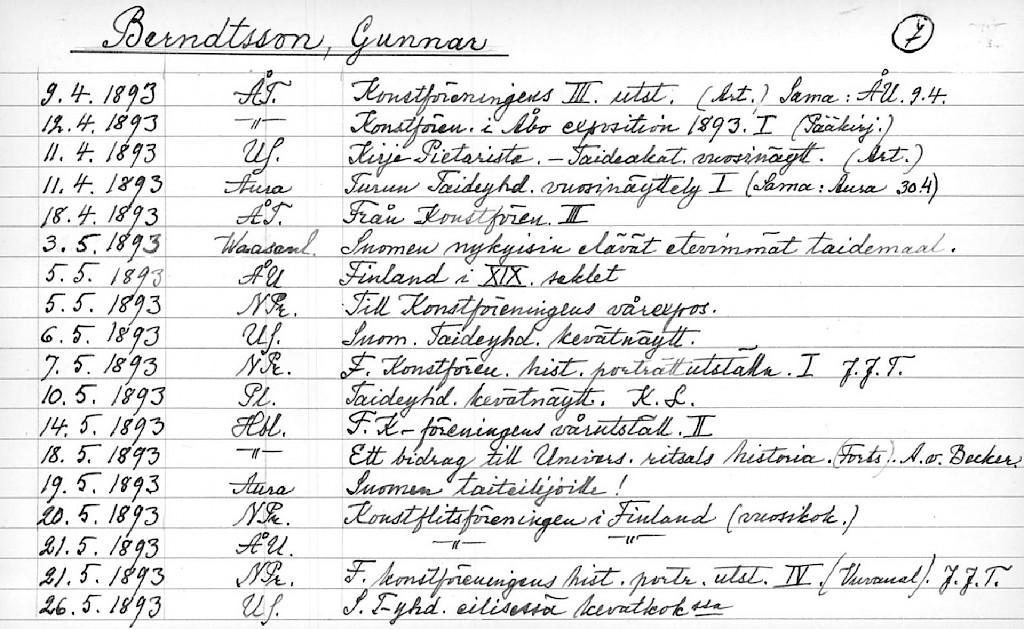 Berndtsson, Gunnar 7
9.4.1893 ÅT. Konstföreningens III. utst. (Art.) Sama: ÅU. 9.4.
12.4.1893 -"- Konstfören. i Åbo exposition 1893. I (Pääkirj.)
11.4.1893 US. Kirje Pietarista. - Taideakat. vuosinäytt. (Art.)
11.4.1893 Aura Turun Taideyhd. vuosinäyttely I (Sama: Aura 30.4)
18.4.1893 ÅT. Från Konstfören. III
3.5.1893 Waasanl. Suomen nykyisin elävät etevimmät taidemaal.
5.5.1893 ÅU Finland i XIX. seklet
5.5.1893 NPr. Till Konstföreningens vårexpos.
6.5.1893 US. Suom. Taideyhd. kevätnäytt.
7.5.1893 NPr. F. Konstfören. hist. porträttutställn. I J.J.T.
10.5.1893 Pl. Taideyhd. kevätnäytt. K.L.
14.5.1893 Hbl. F.K-föreningens vårutställ. II
18.5.1893 -"- Ett bidrag till Univers. ritsals historia. (Forts). A.v. Becker.
19.5.1893 Aura Suomen taiteilijoille!
20.5.1893 NPr. Konstflitsföreningen i Finland (vuosikok.)
21.5.1893 ÅU. -"- -"-
21.5.1893 NPr. F. konstföreningens hist. portr. utst. IV. (Kuvamal). J.J.T.
26.5.1893 US. S.T-yhd. eilisessä kevätkok ssa